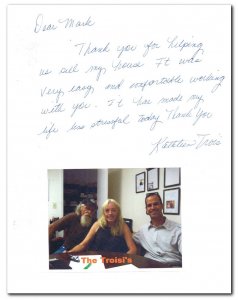 Dear Mark
Thank you for helping
us sell my house. It was
very easy, and comfortable working
with you. It has made my
life less stressful today Thank You
Kathleen Trois
The Troisi's